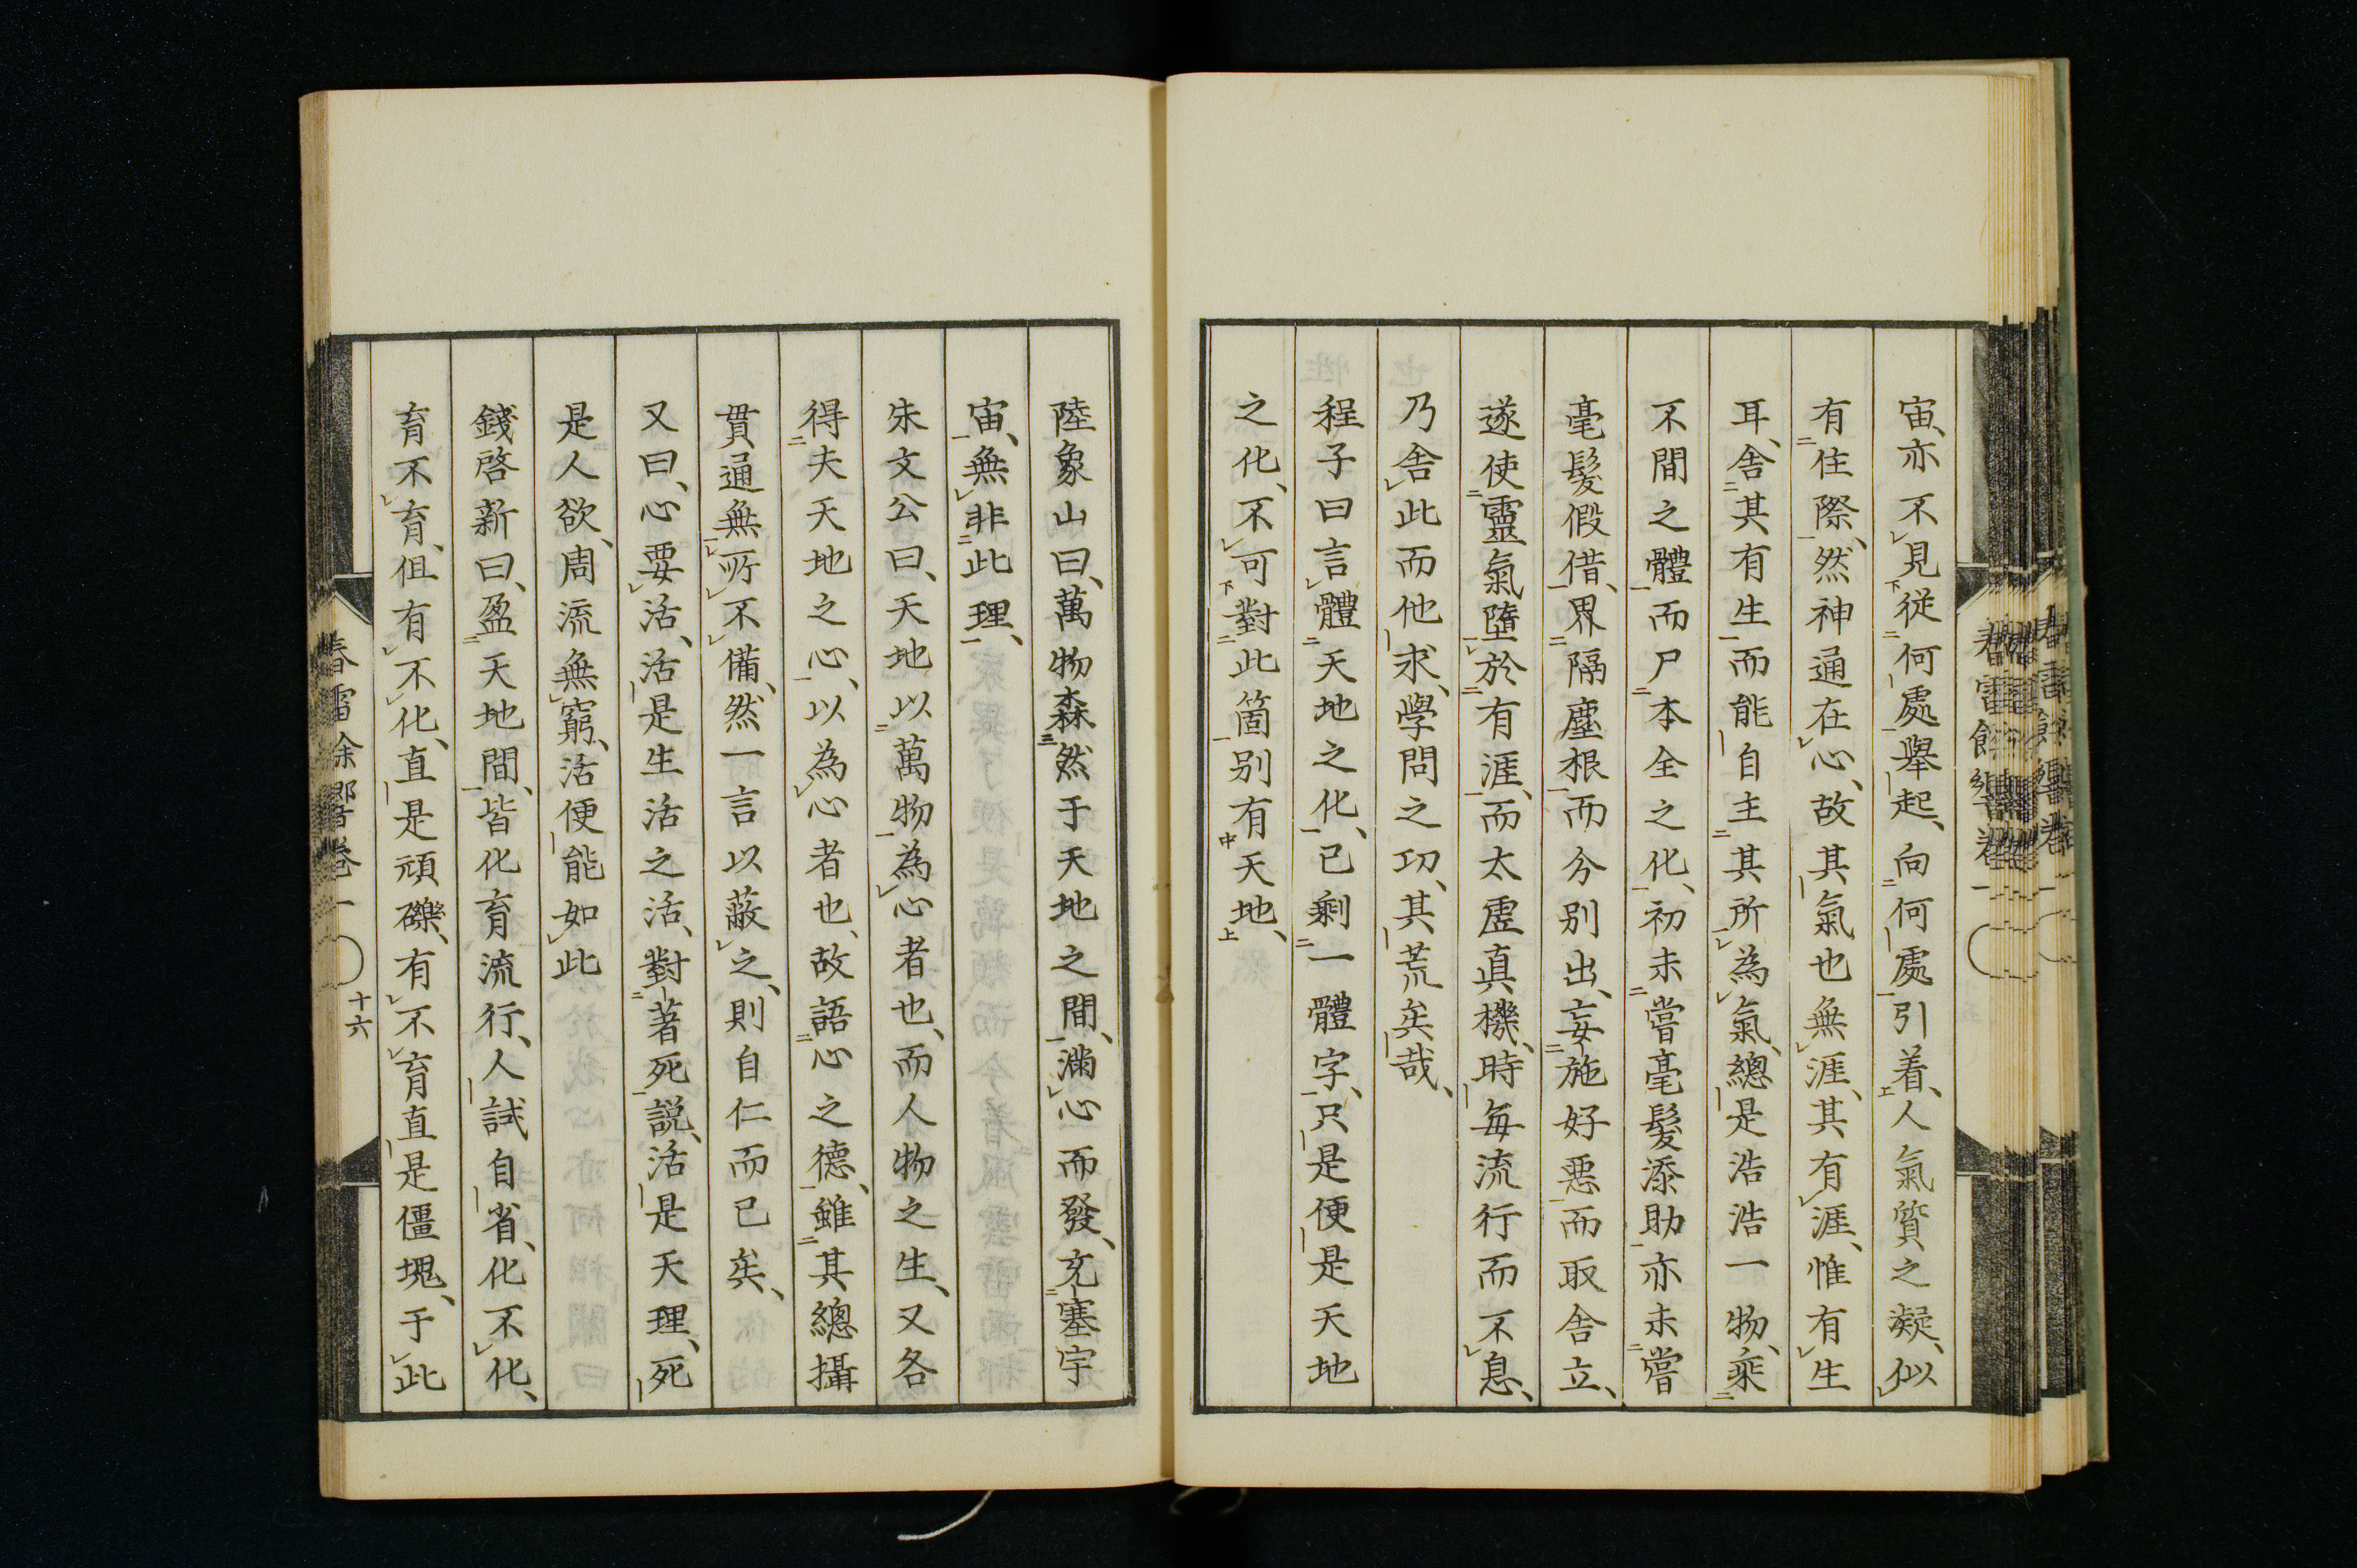 宙、亦不見從何處舉起、向何處引着、人氣質之凝、似
有住際、然神通在心、故其氣也無涯、其有涯、惟有生
耳、舍其有生而能自主其所為氣、總是浩浩一物、乘
不間之體而尸本全之化、初未嘗毫髮添助亦未嘗
毫髮假借、界隔塵根而分別出、妄施好惡而取舍立、
遂使靈氣墮於有涯、而太虛真機、時每流行而不息、
乃舍此而他求、學問之功、其荒矣哉、
程子曰言體天地之化、已剩一體字、只是便是天地
之化、不可對此箇別有天地、
陸象山曰、萬物森然于天地之間、滿心而發、充塞宇
宙、無非此理、
朱文公曰、天地以萬物為心者也、而人物之生、又各
得夫天地之心、以為心者也、故語心之德、雖其總攝
貫通無所不備、然一言以蔽之、則自仁而已矣、
又曰、心要活、活是生活之活、對著死說、活是天理、死
是人欲、周流無窮、活便能如此
錢啓新曰、盈天地間、皆化育流行、人試自省、化不化、
育不育、但有不化、直是頑礫、有不育直是僵塊、于此
春雷餘響卷一
十六